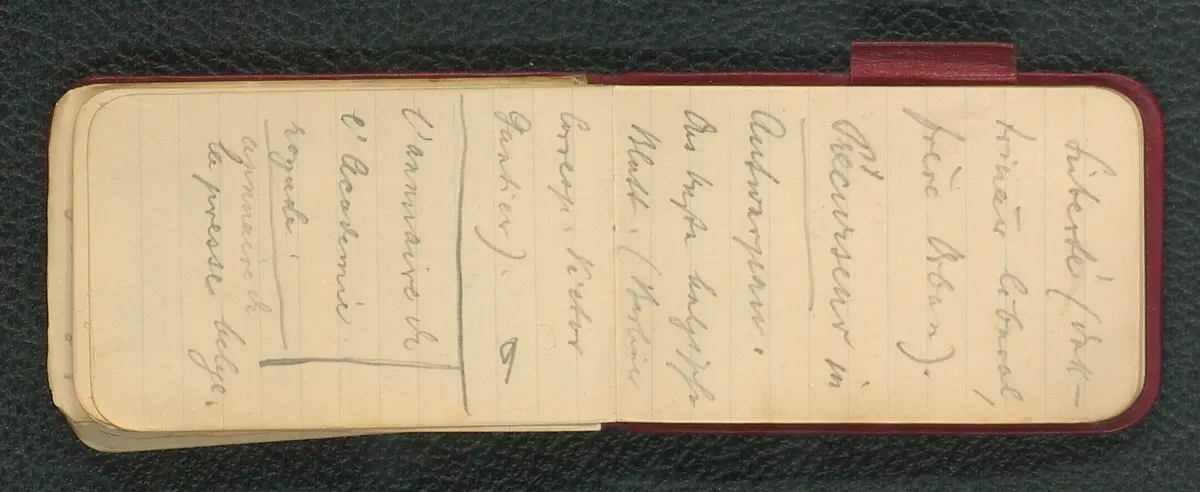 Liberté (dok-
trinär liberal,
frère Orban).
Précurseur in
Antwerpen.
Das beste belgische
Blatt. (Berliner
Corresp. Victor
Gantier).
L'annuaire de
l'Académie
royale.
annuaire de
la presse belge.